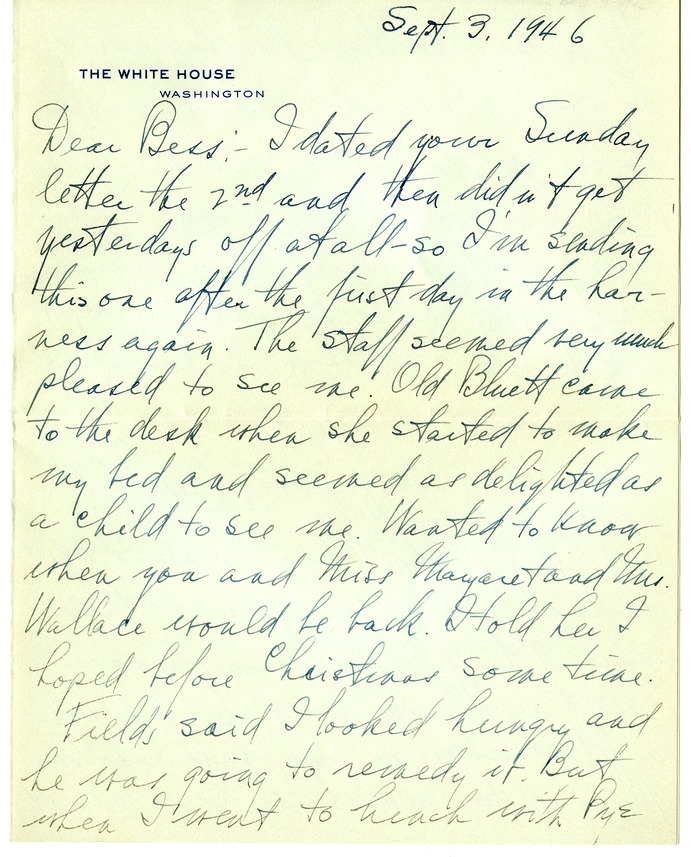 Sept. 3, 1946
THE WHITE HOUSE
WASHINGTON
Dear Bess:- I dated your Sunday
letter the 2nd and then didn't get
yesterdays off at all-so I'm sending
this one after the first day in the har-
ness again. The staff seemed very much
pleased to see me. Old Bluett came
to the desk when she started to make
my bed and seemed as delighted as
a child to see me. Wanted to know
when you and Miss Margaret and Mrs.
Wallace would be back. I told her I
hoped before Christmas some time.
Fields said I looked hungry and
he was going to remedy it. But
when I went to lunch with Pye